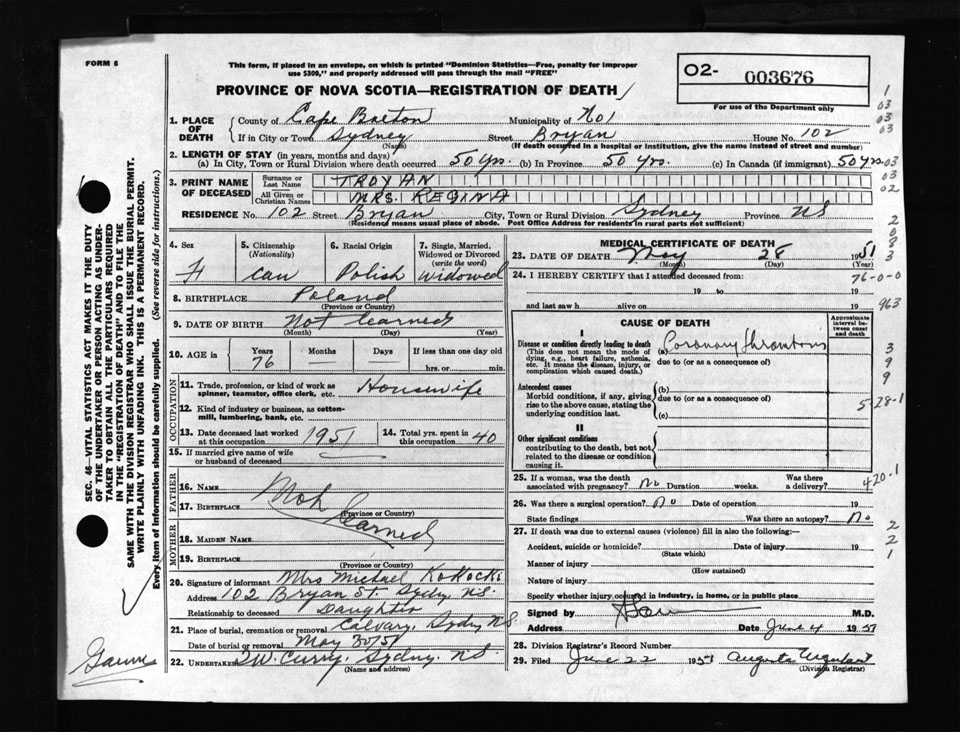 FORM 6
This form, if placed in an envelope, on which is printed "Dominion Statistics—Free, penalty for improper
use $300," and properly addressed will pass through the mail "FREE"
PROVINCE OF NOVA SCOTIA—REGISTRATION OF DEATH
O2- 003676
For use of the Department only
1. PLACE OF DEATH
County of Cape Breton Municipality of No 1
If in City or Town Sydney Street Bryan House No. 102
(Name) (If death occurred in a hospital or institution, give name instead of street and number)
2. LENGTH OF STAY (in years, months and days)
(a) In City, Town or Rural Division where death occurred 50 yrs. (b) In Province 50 yrs. (c) In Canada (if immigrant) 50 yrs
3. PRINT NAME OF DECEASED
Surname or Last Name TROYAN
All Given or Christian Names MRS. REGINA
RESIDENCE No. 102 Street Bryan City, Town or Rural Division Sydney Province NS
(Residence means usual place of abode. Post Office Address for residents in rural parts not sufficient)
4. Sex
F
5. Citizenship
(Nationality)
Can
6. Racial Origin
Polish
7. Single, Married,
Widowed or Divorced
(write the word)
Widowed
8. BIRTHPLACE Poland
(Province or Country)
9. DATE OF BIRTH Not learned
(Month) (Day) (Year)
10. AGE in
Years
76
Months
Days
If less than one day old
hrs. or min.
OCCUPATION
11. Trade, profession, or kind of work as
spinner, teamster, office clerk, etc. Housewife
12. Kind of industry or business, as cotton-
mill, lumbering, bank, etc.
13. Date deceased last worked
at this occupation 1951
14. Total yrs. spent in
this occupation 40
15. If married give name of wife
or husband of deceased
FATHER
16. NAME
17. BIRTHPLACE
(Province or Country)
Not Learned
MOTHER
18. MAIDEN NAME
19. BIRTHPLACE
(Province or Country)
20. Signature of informant Mrs Michael Kokocki
Address 102 Bryan St. Sydney N.S.
Relationship to deceased Daughter
21. Place of burial, cremation or removal Calvary, Sydney N.S.
Date of burial or removal May 30/51
22. UNDERTAKER Curry, Sydney, N.S.
(Name and address)
MEDICAL CERTIFICATE OF DEATH
23. DATE OF DEATH May 28 1951
(Month) (Day) (Year)
24. I HEREBY CERTIFY that I attended deceased from:
19 to 19
and last saw h alive on 19
CAUSE OF DEATH
Approximate interval between onset and death
I
Disease or condition directly leading to death
(This does not mean the mode of
dying, e.g., heart failure, asthenia,
etc. It means the disease, injury, or
complication which caused death.)
(a) Coronary Thrombosis
due to (or as a consequence of)
Antecedent causes
Morbid conditions, if any, giving
rise to the above cause, stating the
underlying condition last.
(b)
due to (or as a consequence of)
(c)
II
Other significant conditions
contributing to the death, but not
related to the disease or condition
causing it.
25. If a woman, was the death
associated with pregnancy? No Duration weeks. Was there
a delivery?
26. Was there a surgical operation? No Date of operation 19
State findings Was there an autopsy? No
27. If death was due to external causes (violence) fill in also the following:—
Accident, suicide or homicide? Date of injury 19
(State which)
Manner of injury
(How sustained)
Nature of injury
Specify whether injury occurred in industry, in home, or in public place
Signed by M.D.
Address Date June 4 1951
28. Division Registrar's Record Number
29. Filed June 22 1951 Augusta Urquhart
(Division Registrar)
1
03
03
03
03
03
02
2
0
8
3
76-0-0
963
3
9
9
5-28-1
420-1
2
2
1
SEC. 46—VITAL STATISTICS ACT MAKES IT THE DUTY
OF THE UNDERTAKER OR PERSON ACTING AS UNDER-
TAKER TO OBTAIN ALL THE PARTICULARS REQUIRED
IN THE "REGISTRATION OF DEATH" AND TO FILE THE
SAME WITH THE DIVISION REGISTRAR WHO SHALL ISSUE THE BURIAL PERMIT.
WRITE PLAINLY WITH UNFADING INK. THIS IS A PERMANENT RECORD.
Every item of Information should be carefully supplied. (See reverse side for instructions.)